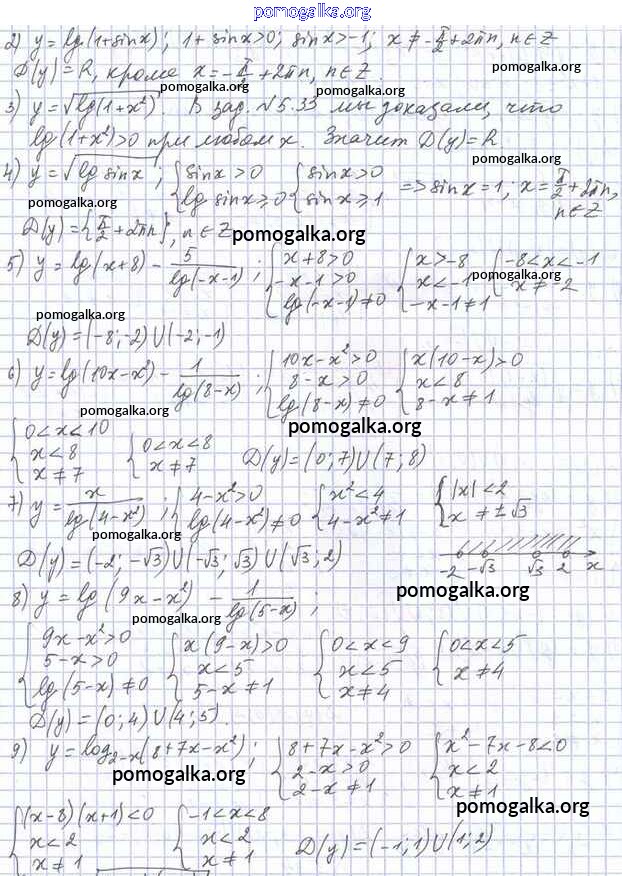 pomogalka.org
2) y = lg(1+sinx); 1+sinx>0; sinx>-1; x ≠ -π/2+2πn, n∈Z
D(y) = R, кроме x = -π/2 + 2πn, n∈Z.
pomogalka.org
3) y = √lg(1+x²) В зад. №5.33 мы доказали, что
lg(1+x²)>0 при любом x. Значит D(y)=R
pomogalka.org
4) y = √lg sinx; { sinx>0 { sinx>0
lg sinx⩾0 sinx⩾1 => sinx=1; x = π/2+2πn, n∈Z
pomogalka.org
pomogalka.org
D(y) = {π/2+2πn}, n∈Z
pomogalka.org
5) y = lg(x+8) - 5/lg(-x-1); { x+8>0 { x>-8 { -8<x<-1
-x-1>0 x<-1 x≠-2
lg(-x-1)≠0 -x-1≠1
pomogalka.org
pomogalka.org
D(y) = (-8;-2)∪(-2;-1)
6) y = lg(10x-x²) - 1/lg(8-x); { 10x-x²>0 { x(10-x)>0
8-x>0 x<8
lg(8-x)≠0 8-x≠1
pomogalka.org
pomogalka.org
{ 0<x<10 { 0<x<8 D(y)=(0;7)∪(7;8)
x<8 x≠7
x≠7
7) y = x/lg(4-x²); { 4-x²>0 { x²<4 { |x|<2
lg(4-x²)≠0 4-x²≠1 x≠±√3
pomogalka.org
D(y) = (-2;-√3)∪(-√3;√3)∪(√3;2)
-2 -√3 √3 2 x
pomogalka.org
8) y = lg(9x-x²) - 1/lg(5-x);
pomogalka.org
{ 9x-x²>0 { x(9-x)>0 { 0<x<9 { 0<x<5
5-x>0 x<5 x<5 x≠4
lg(5-x)≠0 5-x≠1 x≠4
D(y) = (0;4)∪(4;5).
9) y = log₂₋ₓ(8+7x-x²); { 8+7x-x²>0 { x²-7x-8<0
2-x>0 x<2
2-x≠1 x≠1
pomogalka.org
pomogalka.org
{ (x-8)(x+1)<0 { -1<x<8 D(y)=(-1;1)∪(1;2)
x<2 x<2
x≠1 x≠1